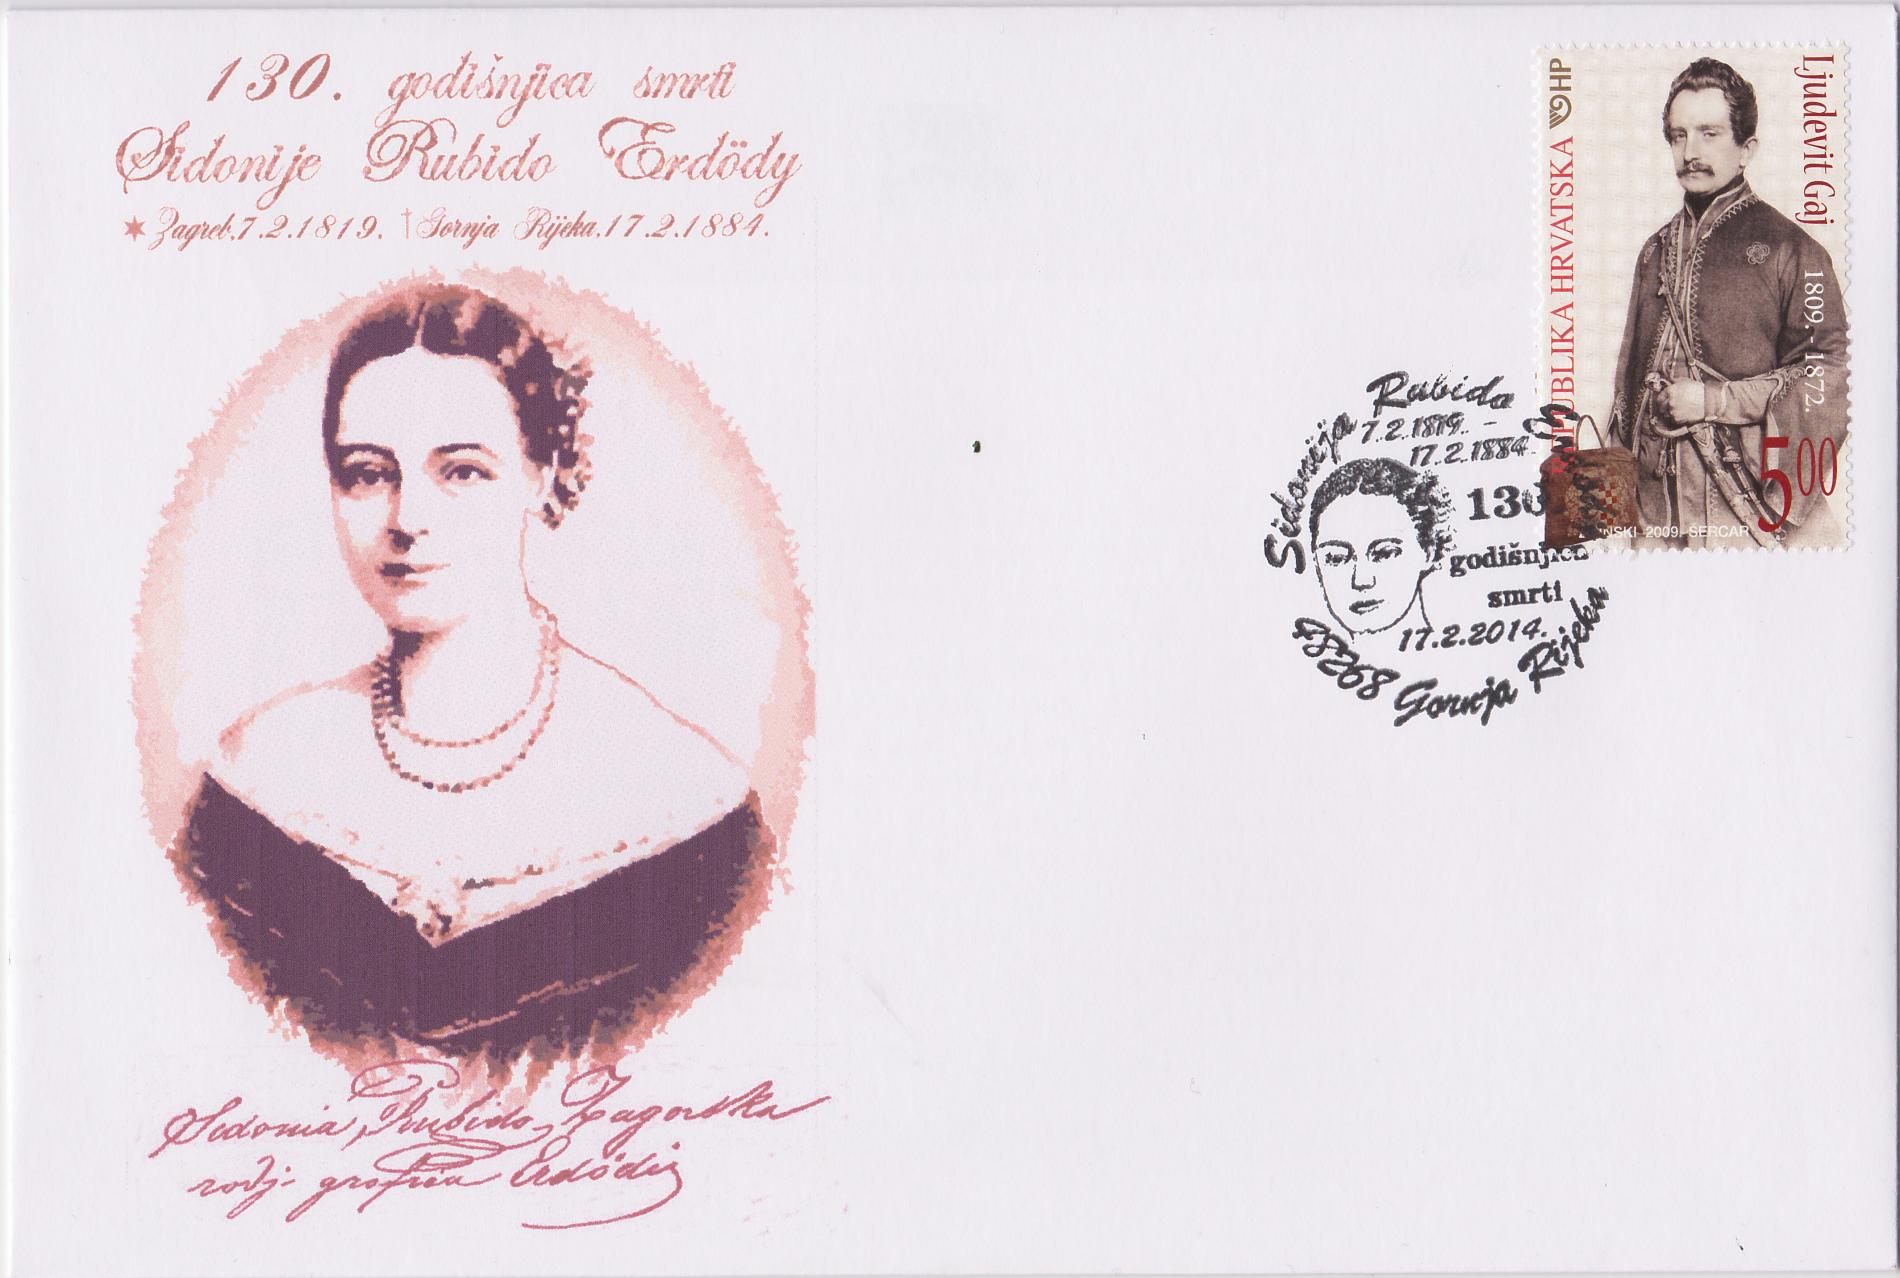 130. godišnjica smrti
Sidonije Rubido Erdödy
* Zagreb, 7.2.1819. † Gornja Rijeka, 17.2.1884.
Sidonia Rubido Zagorska
rodj. grofica Erdödi
REPUBLIKA HRVATSKA HP
Ljudevit Gaj 1809. - 1872.
5 00
2009. ŠERCAR
Sidonija Rubido
7.2.1819. -
17.2.1884.
130
godišnjica
smrti
17.2.2014.
48268 Gornja Rijeka